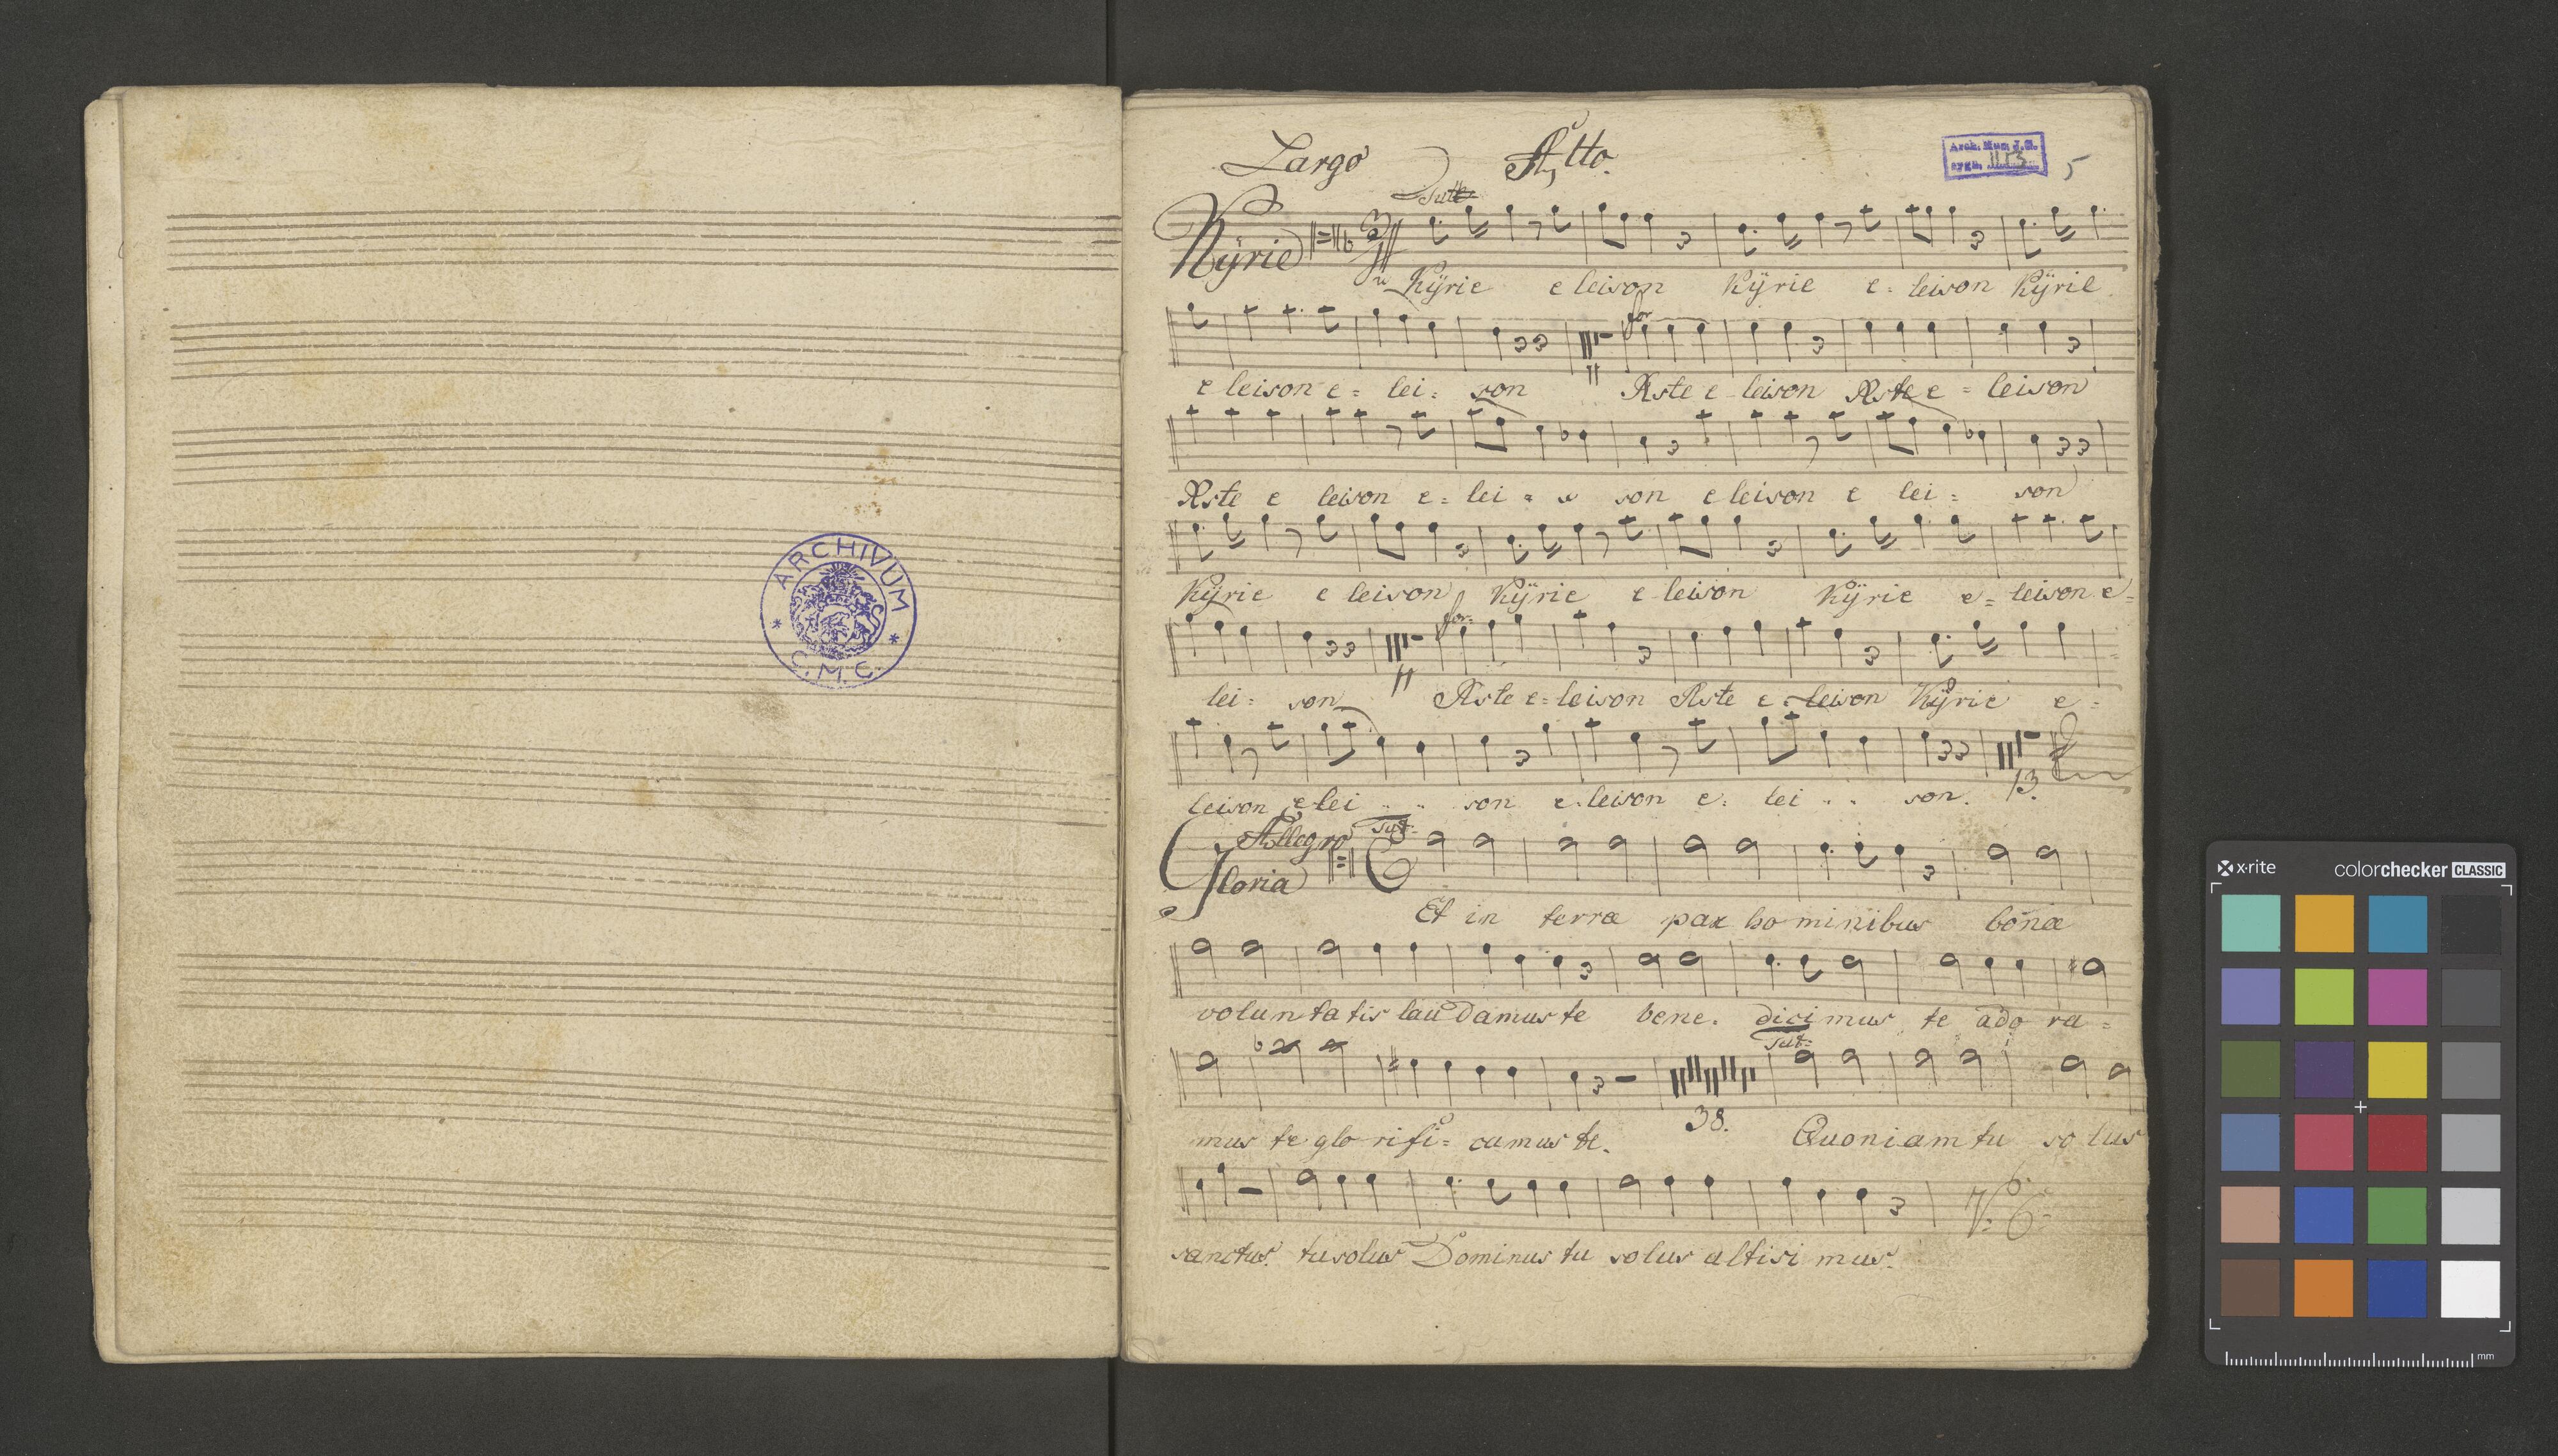 ARCHIVUM
C.M.C.
Largo Alto.
Arch. Mus J.G.
sygn. 1113
5
Tutti
Kÿrie 3/4 Kÿrie eleison Kÿrie e=leison Kÿrie
for
eleison e=lei=son 11 Xste e leison Xste e=leison
Xste e leison e=lei=son eleison e lei=son
Kÿrie e leison Kÿrie e leison Kÿrie e=leison e=
for=
lei=son 11 Xste e=leison Xste e=leison Kÿrie e=
leison e lei..son e.leison e.lei..son. 13.
Allegro Tut=
Gloria Et in terra pax hominibus bonæ
voluntatis laudamus te bene.dicimus te adora=
Tut=
mus te glorifi=camus te. 38. Quoniam tu solus
sanctus. tu solus Dominus tu solus altisimus.